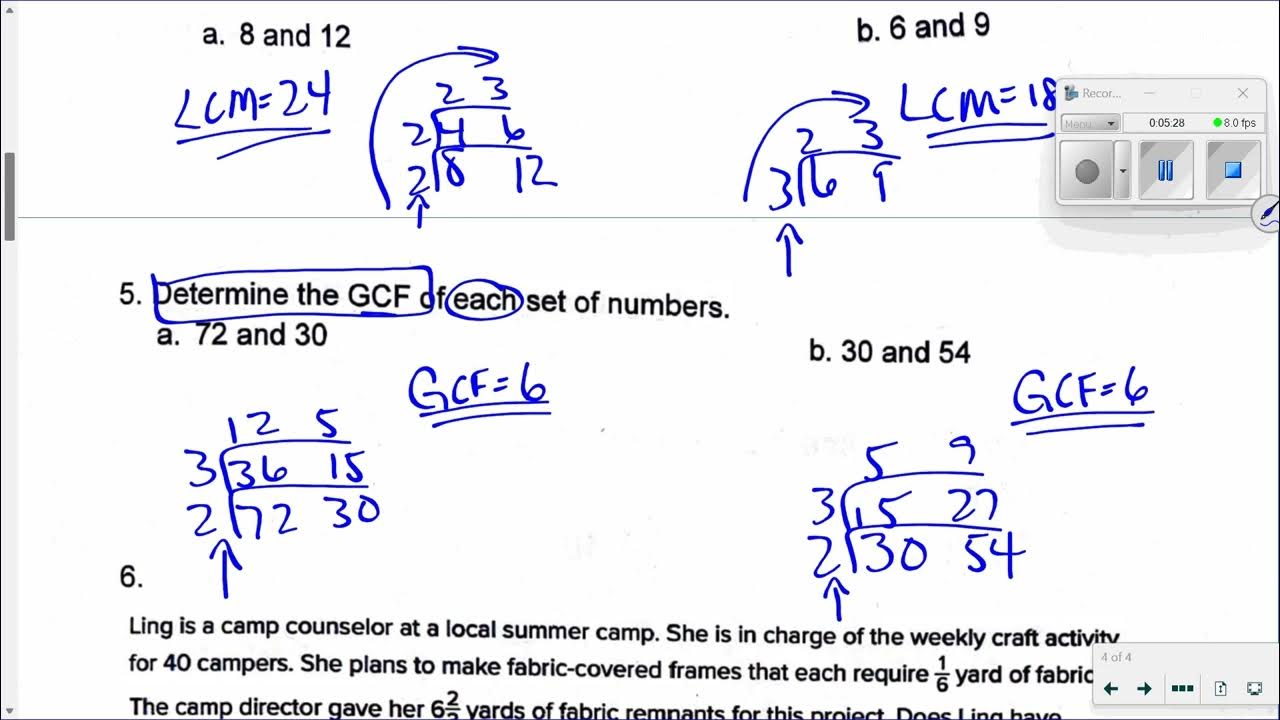 a. 8 and 12
b. 6 and 9
LCM=24
2 3
2 4 6
2 8 12
LCM=18
2 3
3 6 9
Recor...
Menu
0:05:28
8.0 fps
5. Determine the GCF of each set of numbers.
a. 72 and 30
b. 30 and 54
GCF=6
12 5
3 36 15
2 72 30
GCF=6
5 9
3 15 27
2 30 54
6.
Ling is a camp counselor at a local summer camp. She is in charge of the weekly craft activity
for 40 campers. She plans to make fabric-covered frames that each require 1/6 yard of fabric
The camp director gave her 6 yards of fabric remnants for this project. Does Ling have
4 of 4